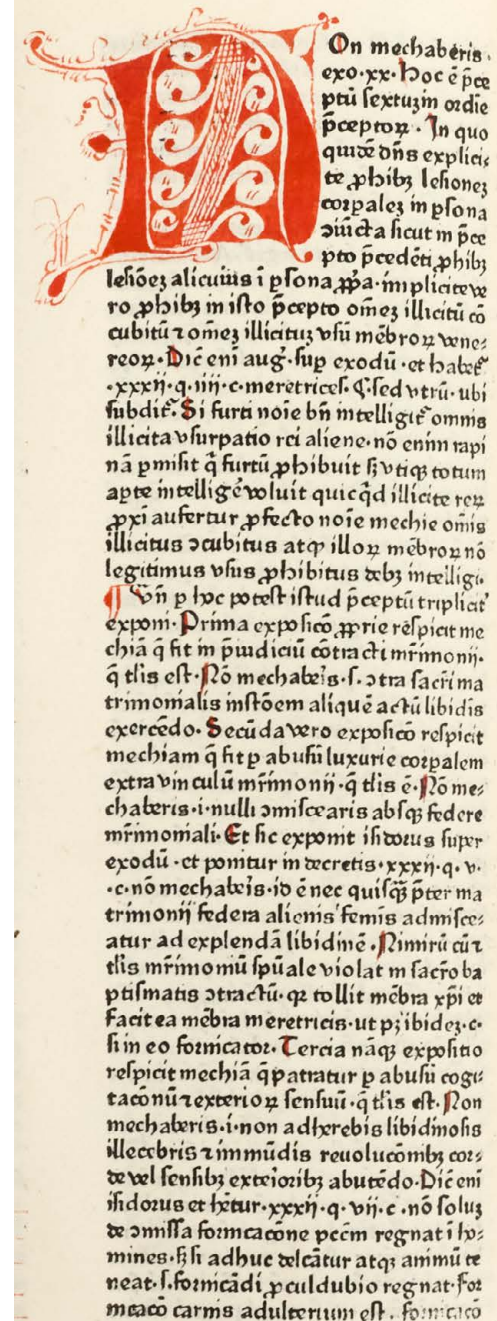 NOn mechaberis.
exo·xx·hoc ē p̄ce
ptū sextuʒ in ordīe
p̄ceptoꝝ· In quo
quidē dn̄s explici⸗
te ꝓhibꝫ lesioneʒ
corꝑaleʒ in ꝑsona
ꝯiūcta sicut in p̄ce
pto p̄cedēti ꝓhibꝫ
lesiōeʒ alicuius ī ꝑsona ꝓp̄a· implicite ve
ro ꝓhibꝫ in isto p̄cepto omēʒ illicitū cō
cubitū ⁊ omēʒ illicituʒ vsū mēbroꝝ vene⸗
reoꝝ· Dic̄ eni aug̓· suꝑ exodū· et habet᷑
·xxxij·q·iiij·c·meretrices· ¶·sed vtrū· ubi
subdit᷑· Si furti noīe bn̄ intelligit᷑ omnis
illicita vsurpatio rei aliene· nō enim rapi
nā ꝑmisit q̄ furtū ꝓhibuit sꝫ vtiqꝫ totum
aꝑte intellig̓e voluit quicq̄d illicite reꝝ
ꝓxī aufertur ꝓfecto noīe mechie om̄is
illicitus ꝯcubitus atqꝫ illoꝝ mēbroꝝ nō
legitimus vsus ꝓhibitus debꝫ intelligi·
¶ Vn̄ ꝑ hoc potest istud p̄ceptū triplicit̓
exponi· Prima exposicō ꝓprie rēspicit me
chiā q̄ fit in p̄iudiciū cōtracti mr̄imonij·
q̄ tl̓is est· Nō mechab̓is·s·ꝯtra sacr̄i ma
trimonialis instōem aliquē actū libidīs
exercēdo· Secūda vero exposicō respicit
mechiam q̄ fit ꝑ abusū luxurie corꝑalem
extra vinculū mr̄imonij·q̄ tl̓is ē· Nō me⸗
chaberis·i·nulli ꝯmiscearis absqꝫ federe
mr̄imoniali· Et sic exponit isidorus super
exodū·et ponitur in decretis·xxxij·q·v·
·c·nō mechab̓is·id ē nec quisqꝫ̄ p̄ter ma
trimonij federa alienis femīs admisce⸗
atur ad explendā libidinē· Nimirū cū ⁊
tl̓is mr̄imoniū spūale violat in sacr̄o ba
ptismatis ꝯtractū·qꝛ tollit mēbra xp̄i et
facit ea mēbra meretricis·ut pꝫ ibideʒ·c·
si in eo fornicator· Tercia nāqꝫ expositio
respicit mechiā q̄ patratur ꝑ abusū cogi⸗
tacōnū ⁊ exterioꝝ sensuū·q̄ tl̓is est· Non
mechaberis·i·non adherebis libidinosis
illecebris ⁊ immūdis reuolucōnibꝫ cor⸗
de vel sensibꝫ exterioribꝫ abutēdo· Dic̄ eni
isidorus et hr̄tur·xxxij·q·vij·c·nō soluʒ
de ꝯmissa fornicacōne pcc̄m regnat ī ho⸗
mines·sꝫ si adhuc delc̄atur atqꝫ animū te
neat·s·fornicādi ꝓculdubio regnat· For
nicacō carnis adulterium est· fornicacō